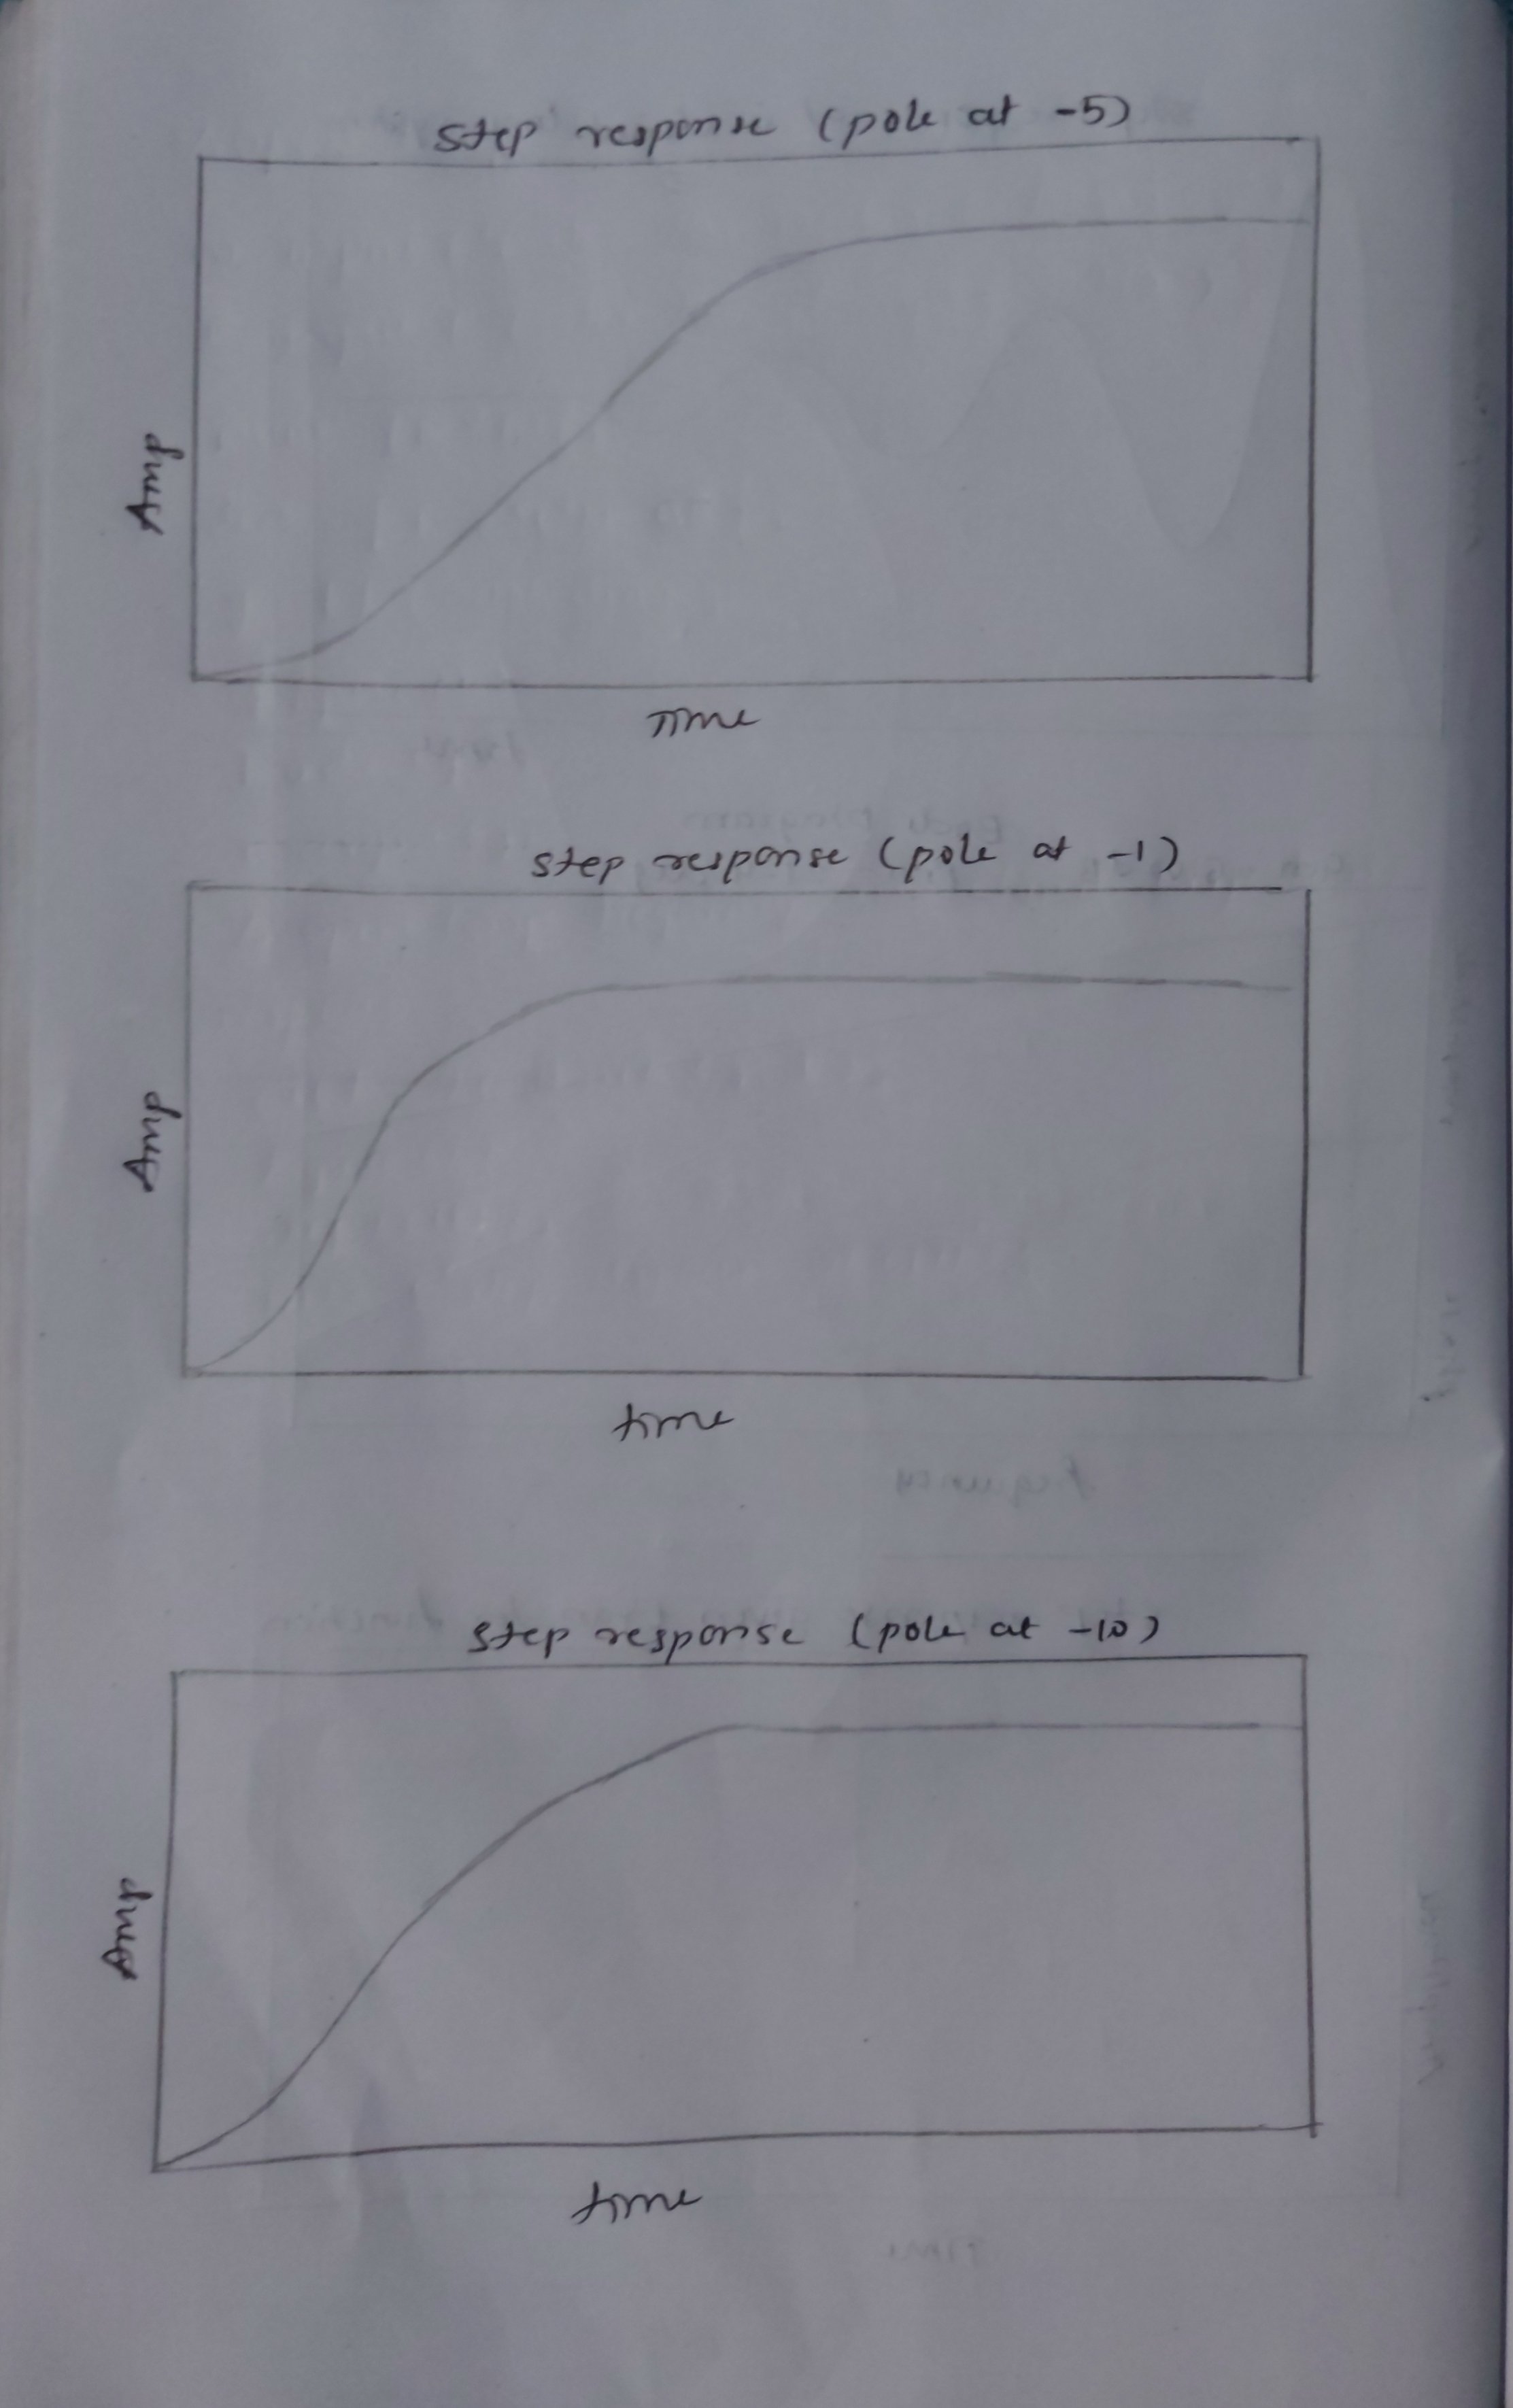 step response (pole at -5)
Amp
Time
step response (pole at -1)
Amp
time
step response (pole at -10)
Amp
time